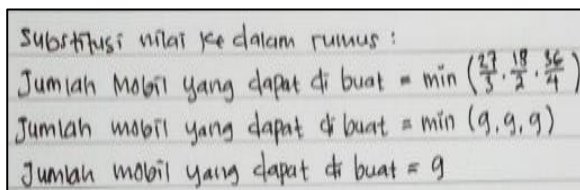 Substitusi nilai ke dalam rumus :
Jumlah Mobil yang dapat di buat = min (27/3, 18/2, 36/4)
Jumlah mobil yang dapat di buat = min (9, 9, 9)
Jumlah mobil yang dapat di buat = 9